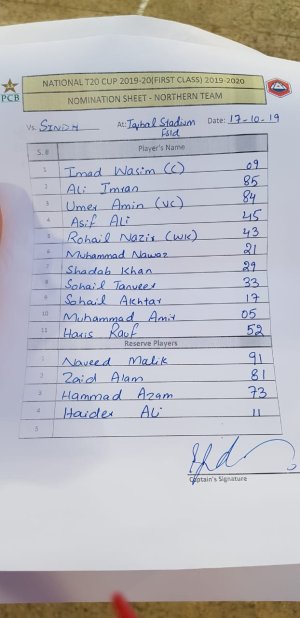 PCB
NATIONAL T20 CUP 2019-20(FIRST CLASS) 2019-2020
NOMINATION SHEET - NORTHERN TEAM
Vs. SINDH At: Iqbal Stadium Fsld Date: 17-10-19
S.# Player's Name
1 Imad Wasim (C) 09
2 Ali Imran 85
3 Umer Amin (VC) 84
4 Asif Ali 45
5 Rohail Nazir (WK) 43
6 Muhammad Nawaz 21
7 Shadab Khan 29
8 Sohail Tanveer 33
9 Sohail Akhtar 17
10 Muhammad Amir 05
11 Haris Rauf 52
Reserve Players
1 Naveed Malik 91
2 Zaid Alam 81
3 Hammad Azam 73
4 Haider Ali 11
5
Captain's Signature